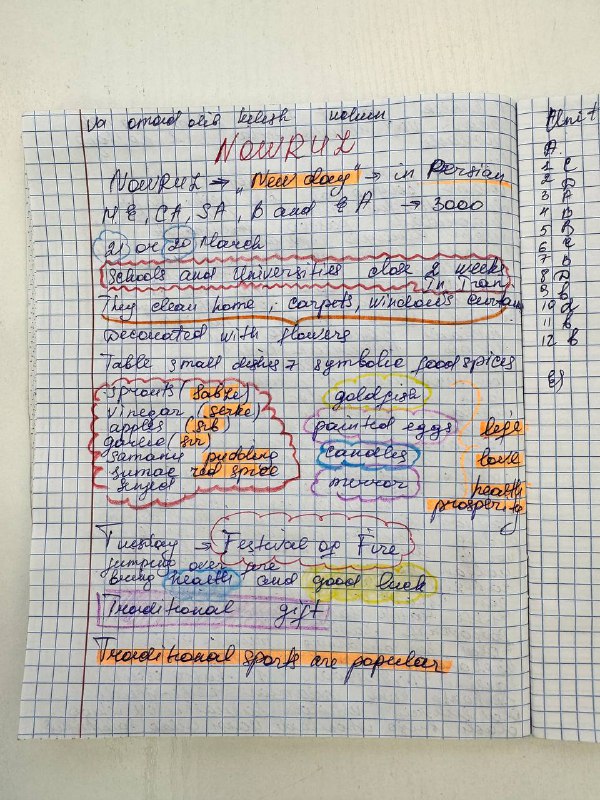 NOWRUZ
NOWRUZ → "New day" → in Persian
M E, CA, SA, B and E A → 3000
21 or 20 March
Schools and Universities close 2 weeks
in Iran
They clean home, carpets, windows curtain
Decorated with flowers
Table small dishes 7 symbolic food spices
Sprouts (sabze)
vinegar (serke)
apples (sib)
garlic (sir)
samanu pudding
sumac red spice
senjed
goldfish
painted eggs
candles
mirror
life
love
health
prosperity
Tuesday → Festival of Fire
jumping over fire
bring health and good luck
Traditional gift
Traditional sports are popular
Unit
A.
1 C
2 D
3 A
4 B
5 B
6
7 B
8 D
9 b
10
11 b
12 b